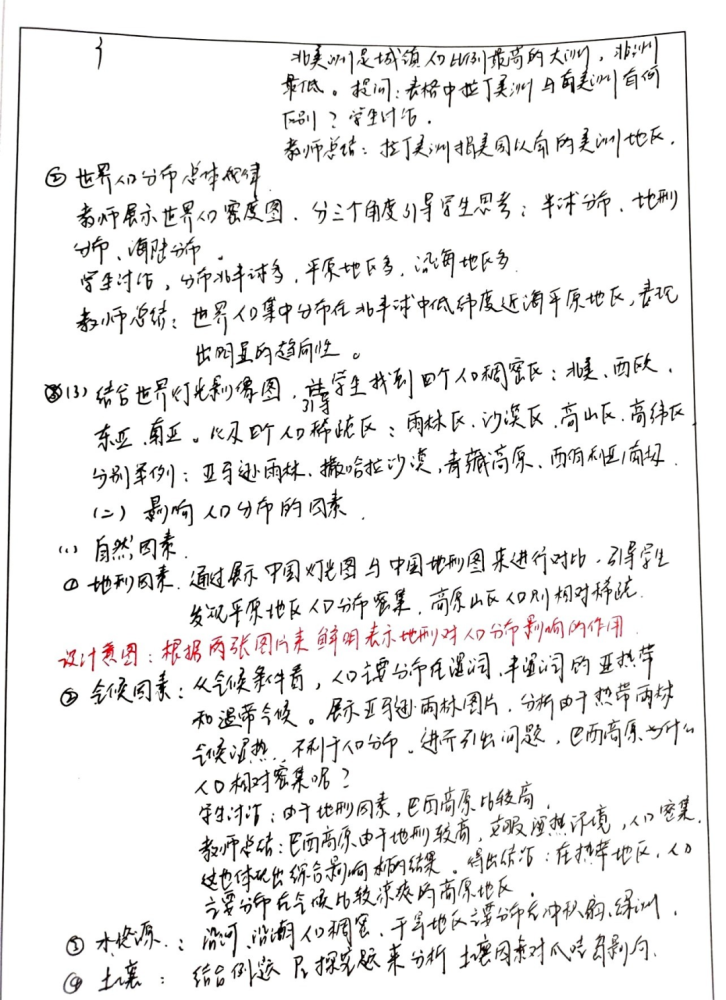 北美洲是城镇人口比例最高的大洲，非洲
最低。提问：表格中拉丁美洲与南美洲有何
区别？学生讨论。
教师总结：拉丁美洲指美国以南的美洲地区。
② 世界人口分布总体规律
教师展示世界人口密度图，分三个角度引导学生思考：半球分布、地形
分布、海陆分布。
学生讨论，分布北半球多，平原地区多，沿海地区多
教师总结：世界人口集中分布在北半球中低纬度近海平原地区，表现
出明显的趋向性。
(3) 结合世界灯光影像图，引导学生找到四个人口稠密区：北美、西欧、
东亚、南亚。以及四个人口稀疏区：雨林区、沙漠区、高山区、高纬区
分别举例：亚马逊雨林、撒哈拉沙漠，青藏高原、西伯利亚/南极
(二) 影响人口分布的因素
(1) 自然因素
① 地形因素：通过展示中国灯光图与中国地形图来进行对比，引导学生
发现平原地区人口分布密集，高原山区人口则相对稀疏
设计意图：根据两张图片来鲜明表示地形对人口分布影响的作用
② 气候因素：从气候条件看，人口主要分布在湿润、半湿润的亚热带
和温带气候。展示亚马逊雨林图片，分析由于热带雨林
气候湿热，不利于人口分布。进而引出问题，巴西高原为什么
人口相对密集呢？
学生讨论：由于地形因素，巴西高原比较高，
教师总结：巴西高原由于地形较高，克服湿热环境，人口密集
这也体现出综合影响的结果。得出结论：在热带地区，人口
主要分布在气候比较凉爽的高原地区
③ 水资源：沿河、沿湖人口稠密，干旱地区主要分布在冲积扇、绿洲，
④ 土壤：结合例题及探究题来分析土壤因素对爪哇岛影响